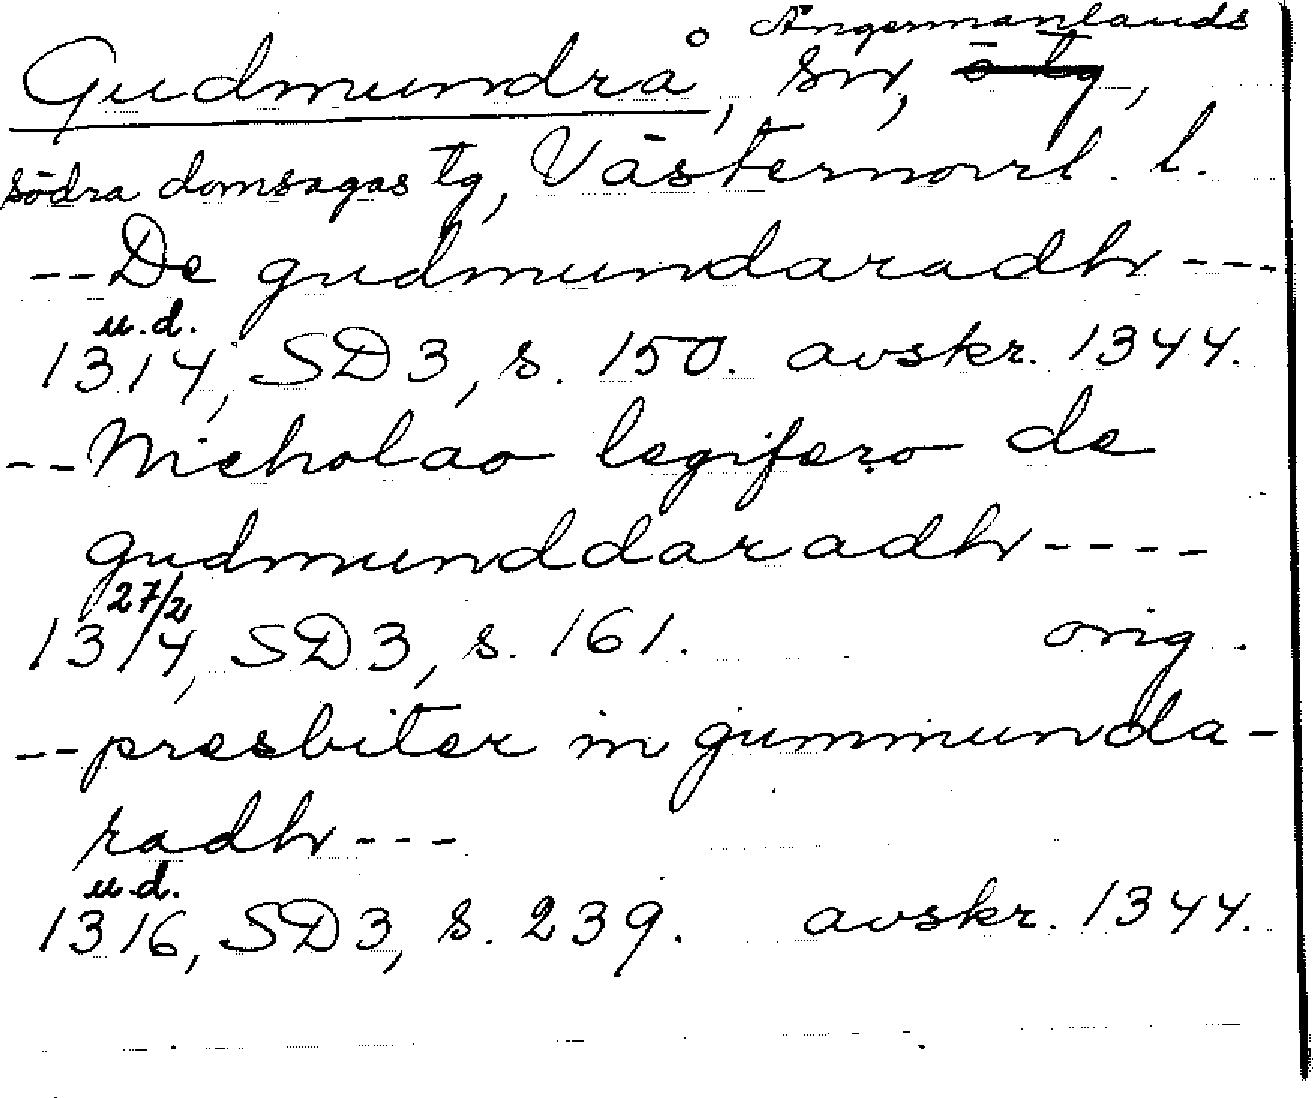 Ångermanlands
Gudmundrå, sn, ö tg,
södra domsagas tg, Västernorrl. l.
--De gudmundaradh---
u.d.
1314, SD 3, s. 150. avskr. 1344.
--Nicholao legifero de
gudmunddaradh----
27/2
1314, SD 3, s. 161. orig.
--presbiter in gummunda-
radh---
u.d.
1316, SD 3, s. 239. avskr. 1344.